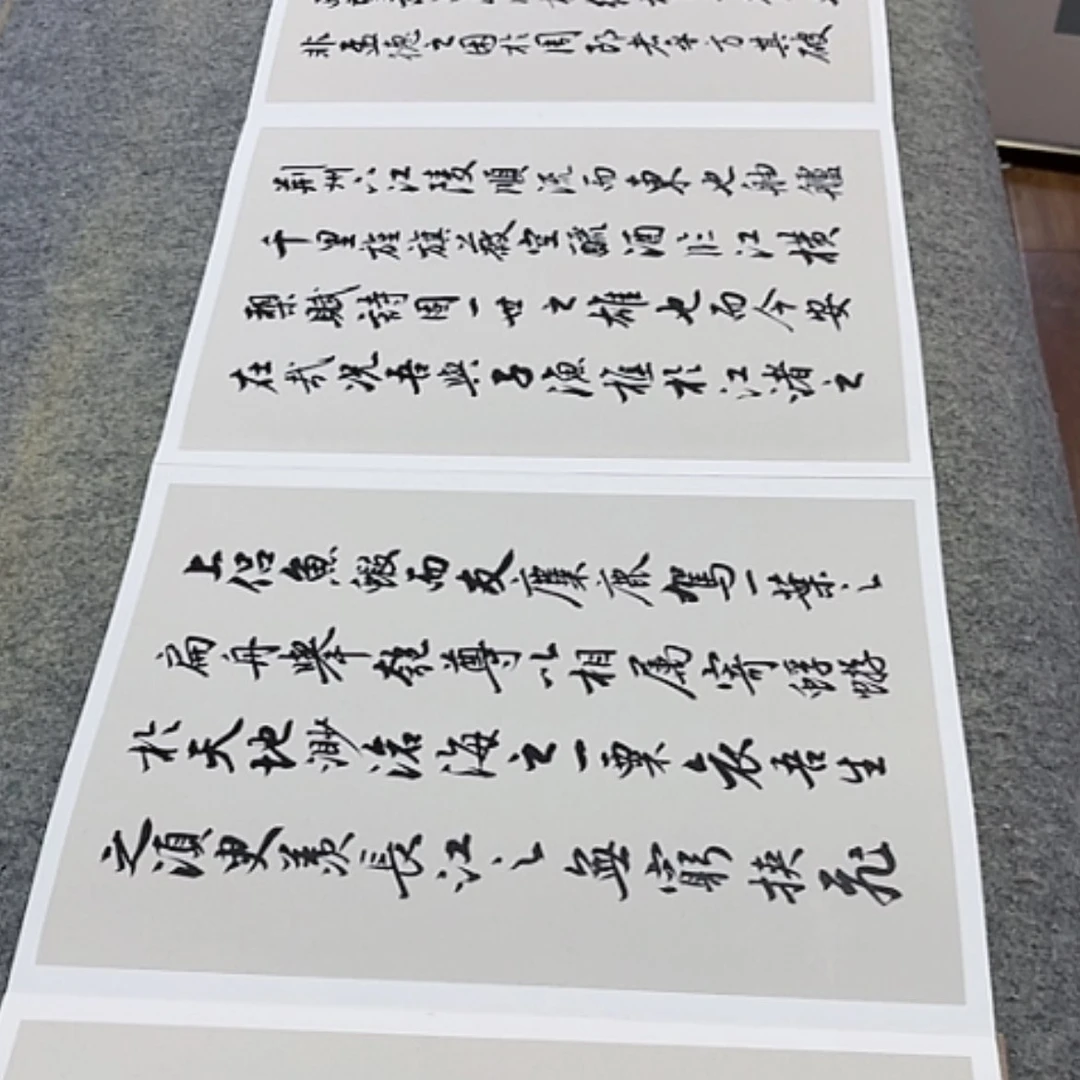 非孟德之困於周郎者乎方其破
荊州下江陵順流而東也舳艫
千里旌旗蔽空釃酒臨江橫
槊賦詩固一世之雄也而今安
在哉況吾與子漁樵於江渚之
上侶魚蝦而友麋鹿駕一葉之
扁舟舉匏尊以相屬寄蜉蝣
於天地渺滄海之一粟哀吾生
之須臾羨長江之無窮挾飛